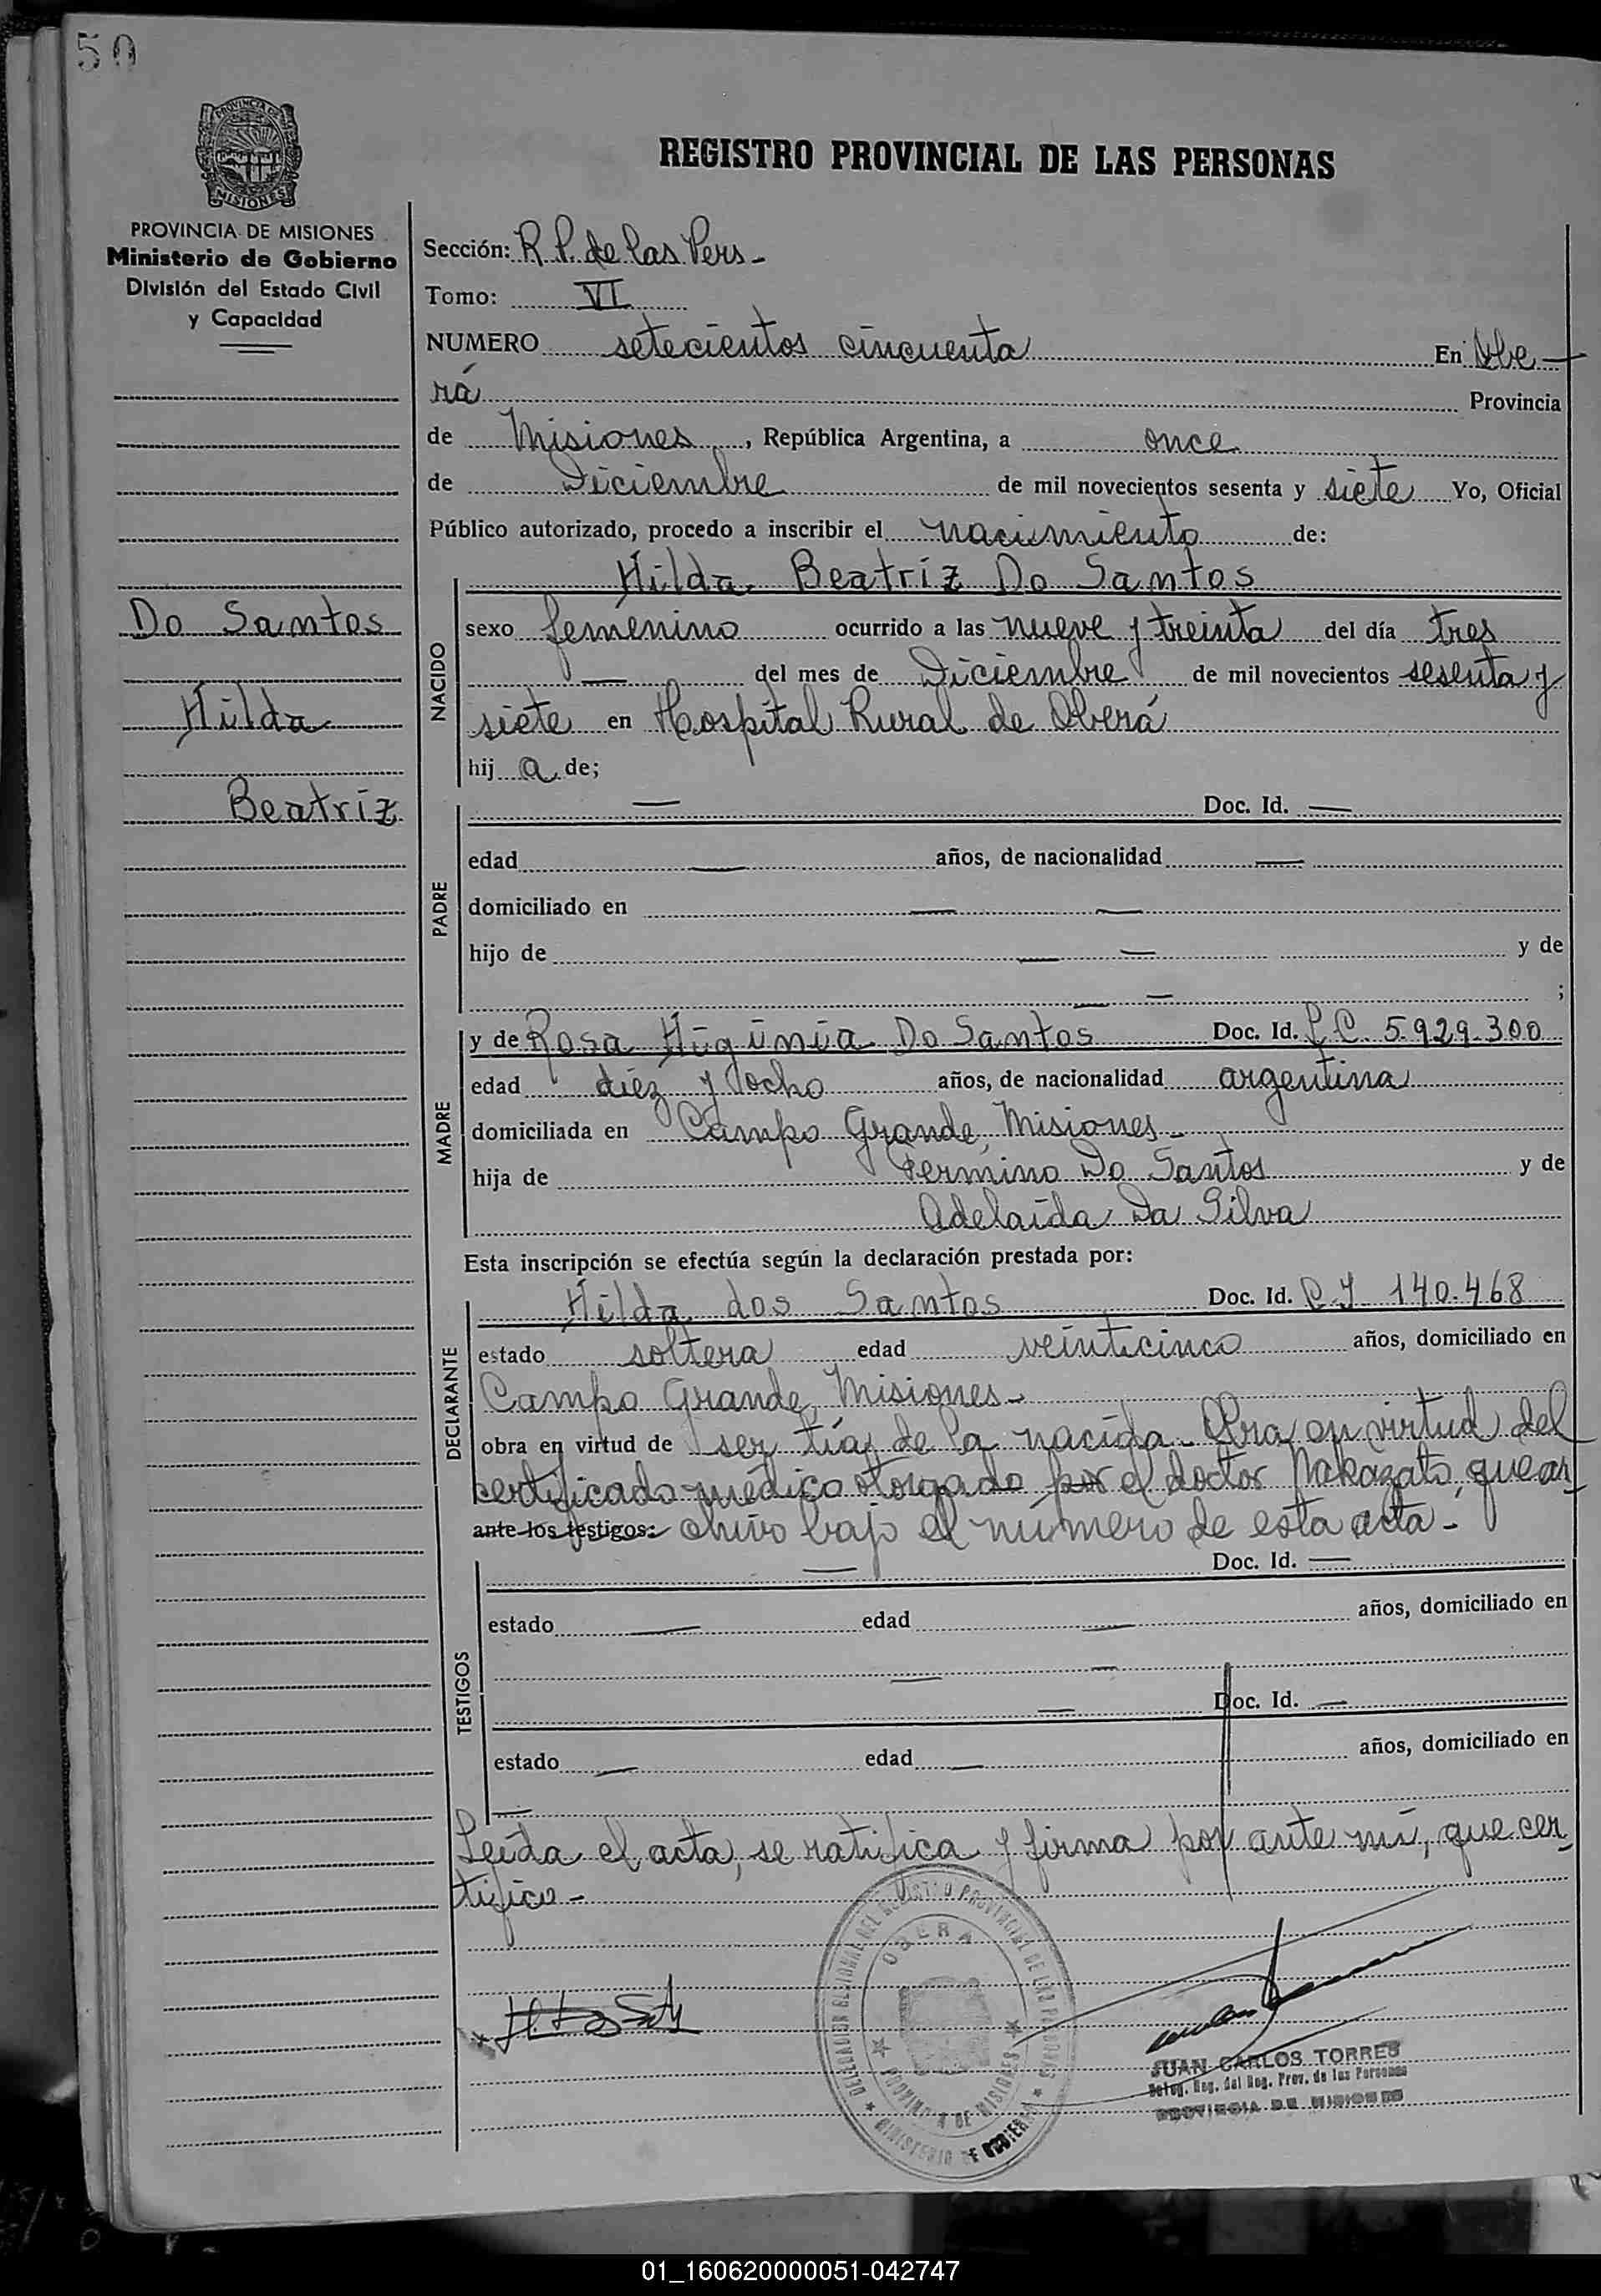 50
PROVINCIA DE
MISIONES
REGISTRO PROVINCIAL DE LAS PERSONAS
PROVINCIA DE MISIONES
Ministerio de Gobierno
División del Estado Civil
y Capacidad
Sección: R. P. de las Pers -
Tomo: VI
NUMERO setecientos cincuenta En Obe-
rá Provincia
de Misiones, República Argentina, a once
de Diciembre de mil novecientos sesenta y siete Yo, Oficial
Público autorizado, procedo a inscribir el nacimiento de:
Do Santos
Hilda
Beatríz
NACIDO
Hilda Beatríz Do Santos
sexo femenino ocurrido a las nueve y treinta del día tres
— del mes de Diciembre de mil novecientos sesenta y
siete en Hospital Rural de Oberá
hij a de;
PADRE
— Doc. Id. —
edad — años, de nacionalidad —
domiciliado en — —
hijo de — — y de
— — ;
MADRE
y de Rosa Higinia Do Santos Doc. Id. L.C. 5.929.300
edad diez y ocho años, de nacionalidad argentina
domiciliada en Campo Grande, Misiones -
hija de Fermino Do Santos y de
Adelaida Da Silva
Esta inscripción se efectúa según la declaración prestada por:
DECLARANTE
Hilda dos Santos Doc. Id. C.I 140.468
estado soltera edad veinticinco años, domiciliado en
Campo Grande, Misiones -
obra en virtud de ser tía de la nacida - Obra en virtud del
certificado médico otorgado por el doctor Nakazato, que ar-
ante los testigos: chivo bajo el número de esta acta -
TESTIGOS
— Doc. Id. —
estado — edad — años, domiciliado en
— —
— Doc. Id. —
estado — edad — años, domiciliado en
—
Leída el acta, se ratifica y firma por ante mí, que cer-
tifico -
DELEGACION REGIONAL DEL REGISTRO PROVINCIAL DE LAS PERSONAS
OBERA
PROVINCIA DE MISIONES
MINISTERIO DE GOBIERNO
H. Dos Sat
JUAN CARLOS TORRES
Deleg. Reg. del Reg. Prov. de las Personas
PROVINCIA DE MISIONES
01_160620000051-042747